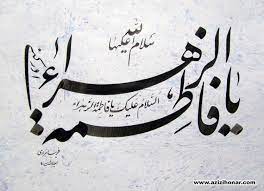 سلام الله علیها
یا فاطمة الزهراء
السلام علیک یا فاطمة الزهراء
www.azizihonar.com